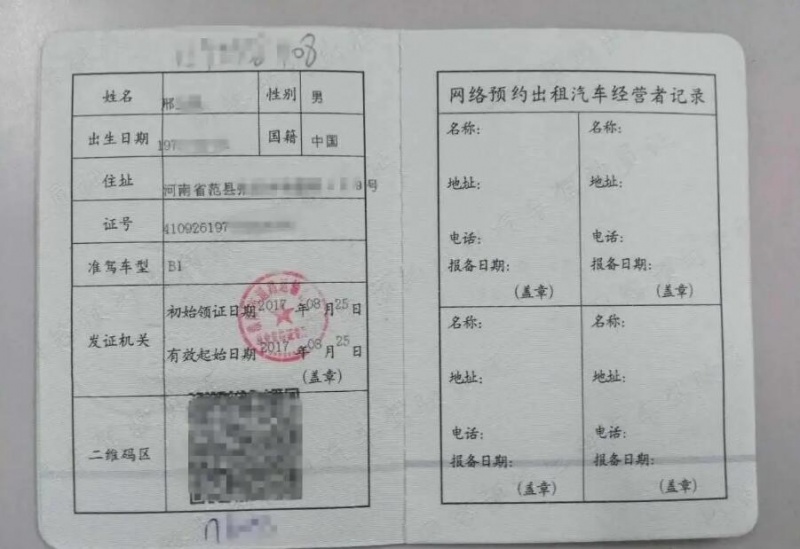 08
姓名 邢 性别 男
出生日期 197 国籍 中国
住址 河南省范县 号
证号 410926197
准驾车型 B1
发证机关
初始领证日期 2017 年 08 月 25 日
有效起始日期 2017 年 08 月 25 日
(盖章)
二维码区
网络预约出租汽车经营者记录
名称:
地址:
电话:
报备日期:
(盖章)
名称:
地址:
电话:
报备日期:
(盖章)
名称:
地址:
电话:
报备日期:
(盖章)
名称:
地址:
电话:
报备日期:
(盖章)